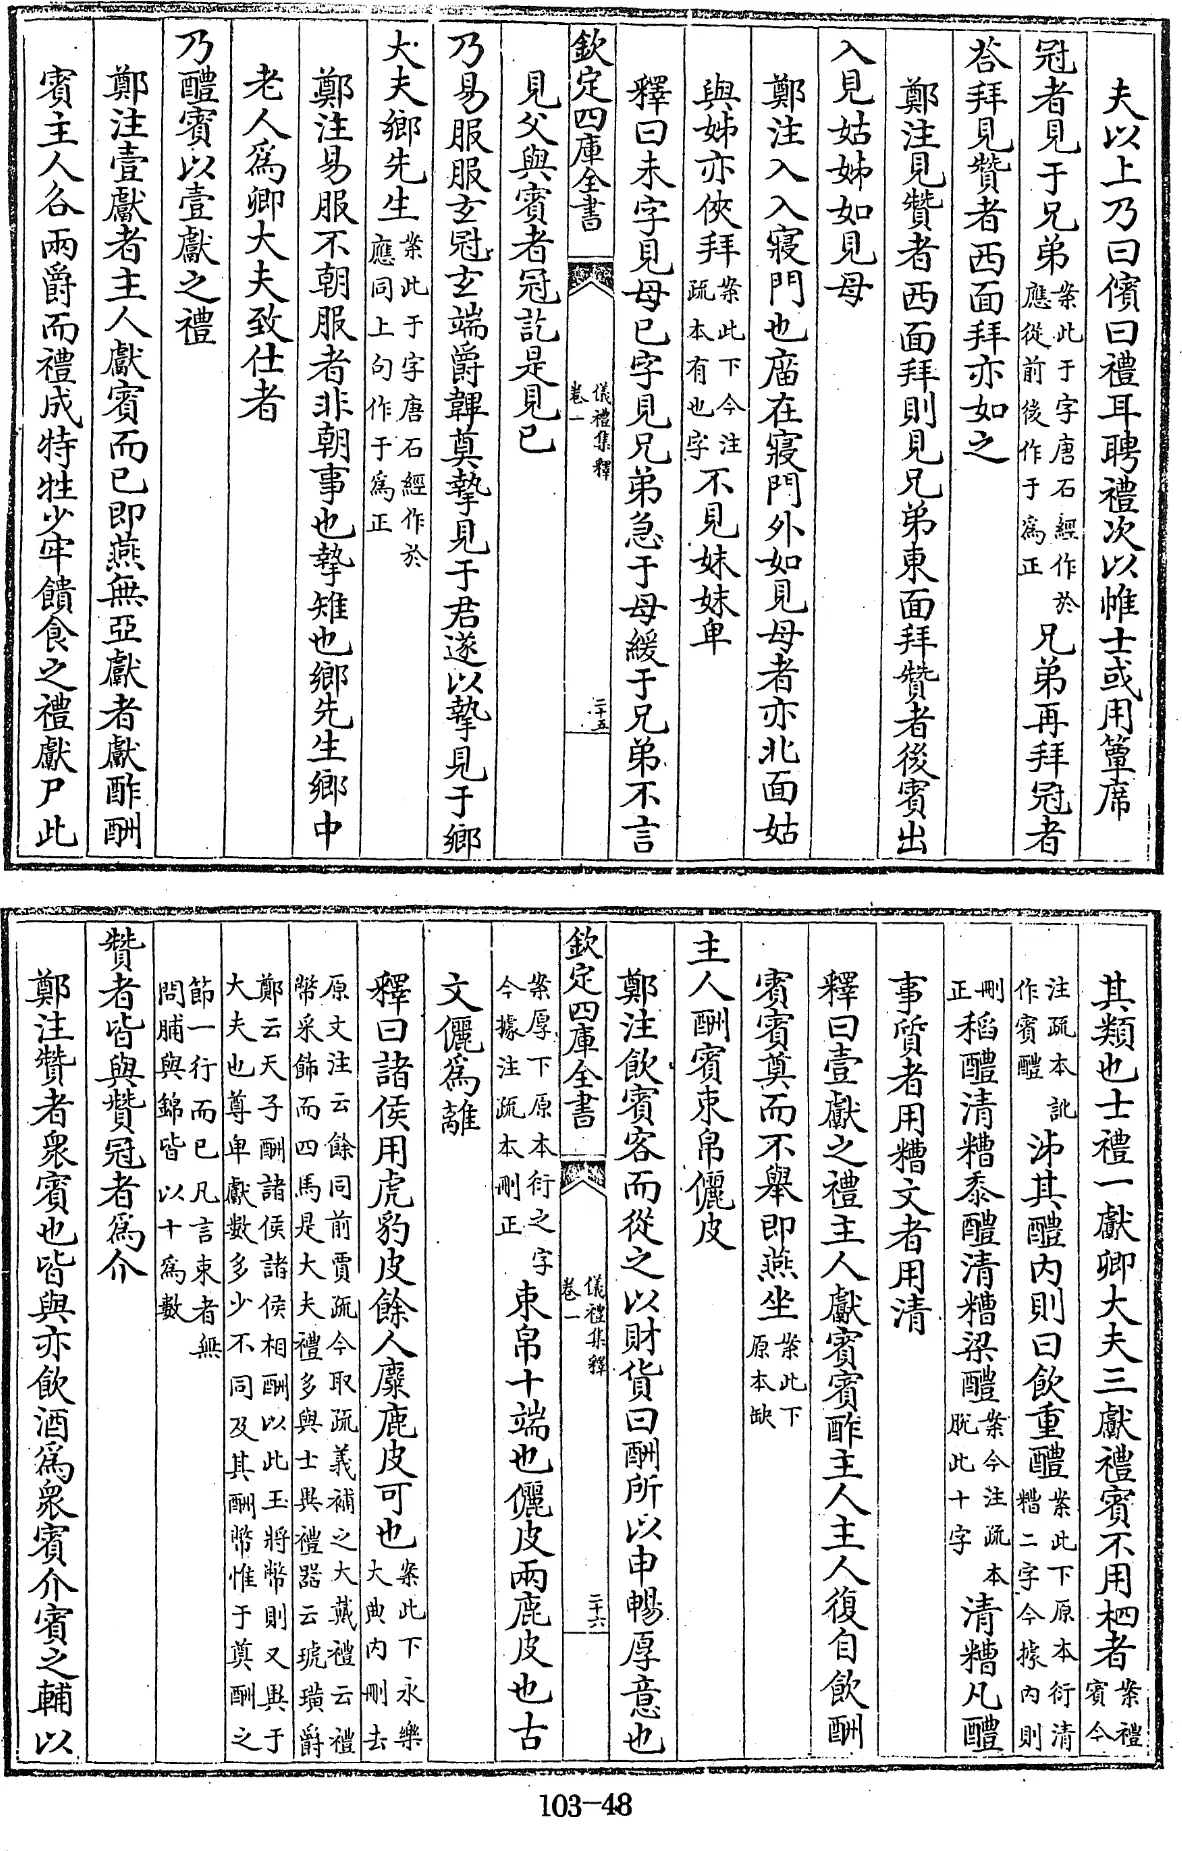 夫以上乃曰儐曰禮耳聘禮次以帷士或用簟席
冠者見于兄弟案此于字唐石經作於應從前後作于爲正兄弟再拜冠者
荅拜見贊者西面拜亦如之
鄭注見贊者西面拜則見兄弟東面拜贊者後賓出
入見姑姊如見母
鄭注入入寢門也廟在寢門外如見母者亦北面姑
與姊亦俠拜案此下今注疏本有也字不見妹妹卑
釋曰未字見母已字見兄弟急于母緩于兄弟不言
欽定四庫全書
儀禮集釋
卷一
二十五
見父與賓者冠訖是見已
乃易服服玄冠玄端爵韠奠摯見于君遂以摯見于鄉
大夫鄉先生案此于字唐石經作於應同上句作于爲正
鄭注易服不朝服者非朝事也摯雉也鄉先生鄉中
老人爲卿大夫致仕者
乃醴賓以壹獻之禮
鄭注壹獻者主人獻賓而已即燕無亞獻者獻酢酬
賓主人各兩爵而禮成特牲少牢饋食之禮獻尸此
其類也士禮一獻卿大夫三獻禮賓不用柶者案禮賓今
注疏本訛作賓醴沛其醴內則曰飲重醴案此下原本衍清糟二字今據內則
刪正稻醴清糟黍醴清糟梁醴案今注疏本脫此十字清糟凡醴
事質者用糟文者用清
釋曰壹獻之禮主人獻賓賓酢主人主人復自飲酬
賓賓奠而不舉即燕坐案此下原本缺
主人酬賓束帛儷皮
鄭注飲賓客而從之以財貨曰酬所以申暢厚意也
欽定四庫全書
儀禮集釋
卷一
二十六
案厚下原本衍之字今據注疏本刪正束帛十端也儷皮兩鹿皮也古
文儷爲離
釋曰諸侯用虎豹皮餘人麋鹿皮可也案此下永樂大典內刪去
原文注云餘同前賈疏今取疏義補之大戴禮云禮
幣采飾而四馬是大夫禮多與士異禮器云琥璜爵
鄭云天子酬諸侯諸侯相酬以此玉將幣則又異于
大夫也尊卑獻數多少不同及其酬幣惟于奠酬之
節一行而已凡言束者無
問脯與錦皆以十爲數
贊者皆與贊冠者爲介
鄭注贊者衆賓也皆與亦飲酒爲衆賓介賓之輔以
103-48